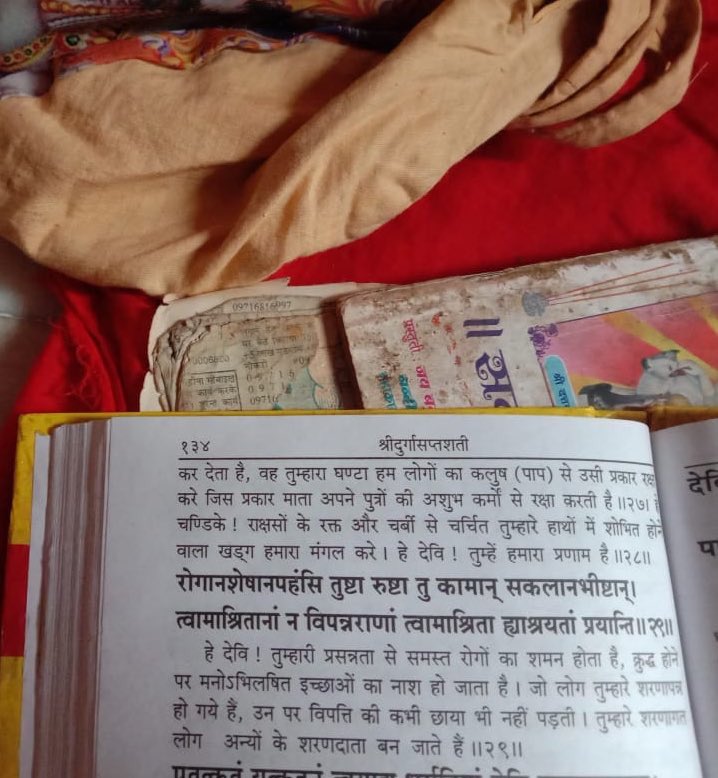 09716616097
0006860
॥
१३४ श्रीदुर्गासप्तशती
कर देता है, वह तुम्हारा घण्टा हम लोगों का कलुष (पाप) से उसी प्रकार
करे जिस प्रकार माता अपने पुत्रों की अशुभ कर्मो से रक्षा करती है॥२७।
चण्डिके! राक्षसों के रक्त और चर्बी से चर्चित तुम्हारे हाथों में शोभित होने
वाला खड्ग हमारा मंगल करे। हे देवि! तुम्हें हमारा प्रणाम है॥२८॥
रोगानशेषानपहंसि तुष्टा रुष्टा तु कामान् सकलानभीष्टान्।
त्वामाश्रितानां न विपन्नराणां त्वामाश्रिता ह्याश्रयतां प्रयान्ति॥२९॥
हे देवि! तुम्हारी प्रसन्नता से समस्त रोगों का शमन होता है, क्रुद्ध होने
पर मनोऽभिलषित इच्छाओं का नाश हो जाता है। जो लोग तुम्हारे शरणापन्न
हो गये हैं, उन पर विपत्ति की कभी छाया भी नहीं पड़ती। तुम्हारे शरणागत
लोग अन्यों के शरणदाता बन जाते हैं॥२९॥